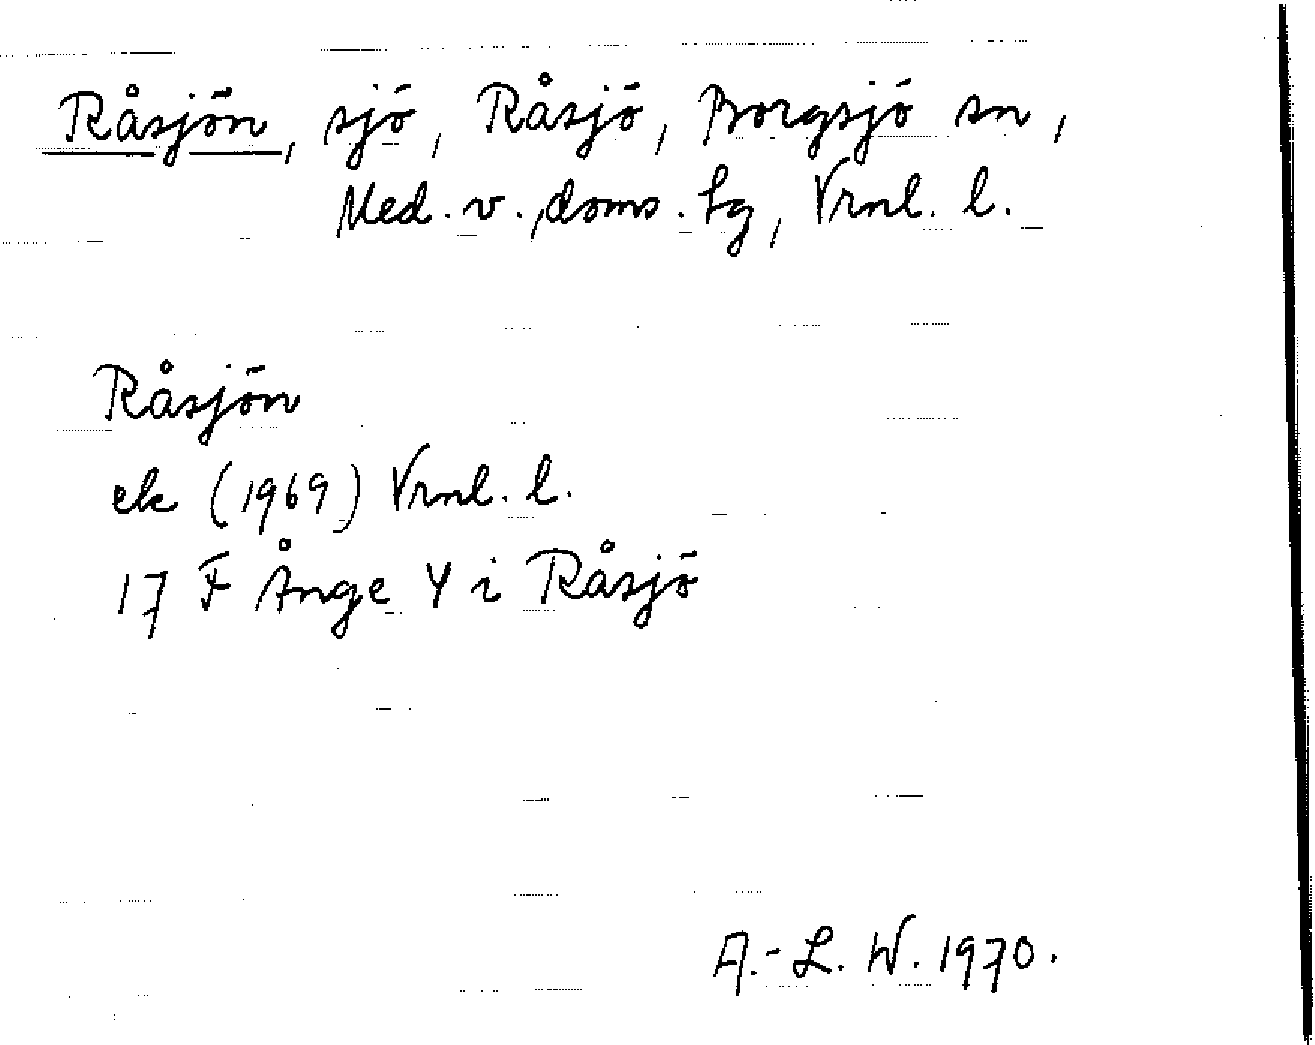 Råsjön, sjö, Råsjö, Borgsjö sn,
Med. v., doms. tg, Vrnl. l.
Råsjön
ek (1969) Vrnl. l.
17 F Ånge Y i Råsjö
A.-L. W. 1970.